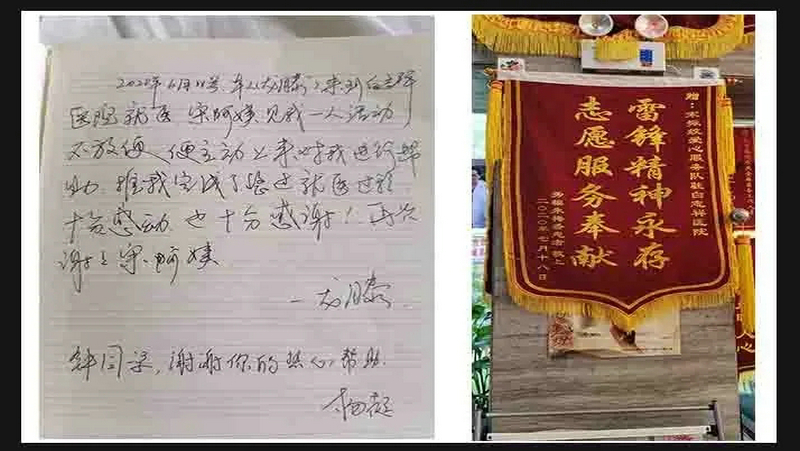 2020年6月11号 本人龙滕 来到白志祥
医院就医 宋阿姨见我一人活动
不放便 便主动上来对我进行帮
助 推我完成了整个就医过程
十分感动 也十分感谢！再次
谢谢宋阿姨
一龙滕
钟同志，谢谢你的热心帮助
杨
赠：宋振效爱心服务队驻白志祥医院
雷锋精神永存
志愿服务奉献
二〇二〇年七月十八日